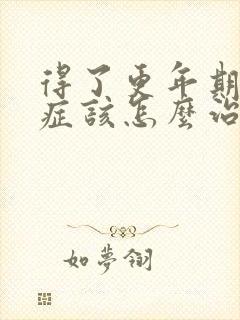 得了更年期
症該怎麼治
如夢翎